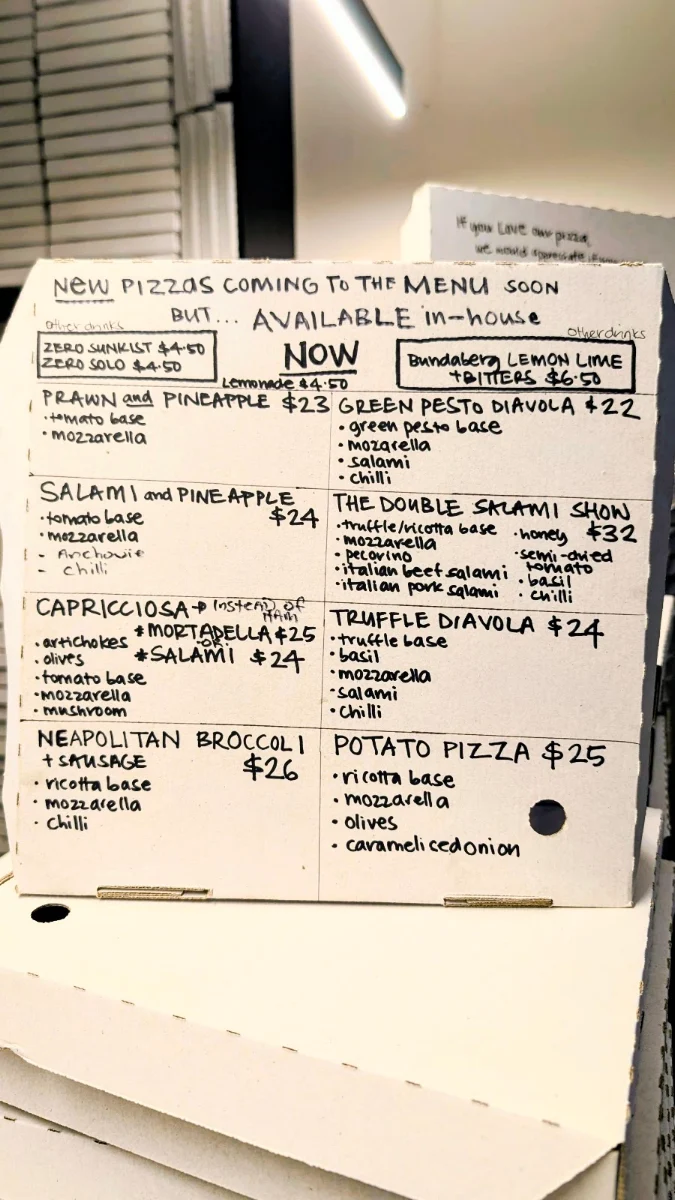 If you Love our pizza,
we would appreciate if
NEW PIZZAS COMING TO THE MENU SOON
BUT... AVAILABLE in-house
NOW
other drinks
ZERO SUNKIST $4.50
ZERO SOLO $4.50
Lemonade $4.50
other drinks
Bundaberg LEMON LIME
+BITTERS $6.50
PRAWN and PINEAPPLE $23
·tomato base
·mozzarella
GREEN PESTO DIAVOLA $22
·green pesto base
·mozarella
·salami
·chilli
SALAMI and PINEAPPLE
$24
·tomato base
·mozzarella
- Anchovie
- chilli
THE DOUBLE SALAMI SHOW
$32
·truffle/ricotta base
·mozzarella
·pecorino
·italian beef salami
·italian pork salami
·honey
·semi-dried
tomato
·basil
·chilli
CAPRICCIOSA → instead of
HAM
*MORTADELLA $25
-OR-
*SALAMI $24
·artichokes
·olives
·tomato base
·mozzarella
·mushroom
TRUFFLE DIAVOLA $24
·truffle base
·basil
·mozzarella
·salami
·chilli
NEAPOLITAN BROCCOLI
+ SAUSAGE
$26
·ricotta base
·mozzarella
·chilli
POTATO PIZZA $25
·ricotta base
·mozzarella
·olives
·caramelicedonion